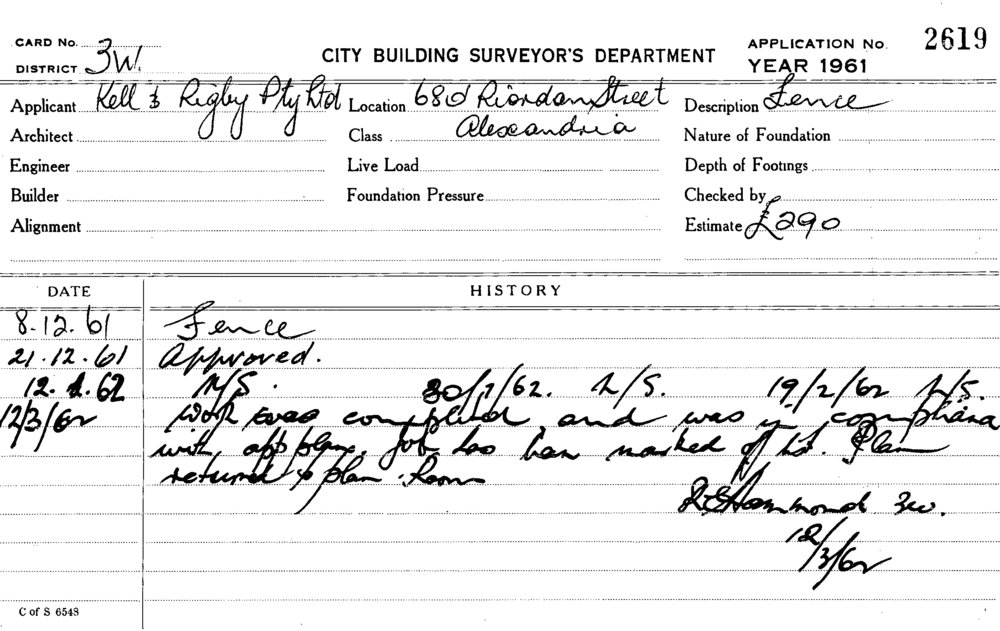 CARD No.
DISTRICT 3W.
CITY BUILDING SURVEYOR'S DEPARTMENT
APPLICATION No. 2619
YEAR 1961
Applicant Kell & Rigby Pty Ltd Location 680 Riordan Street Description Fence
Architect Class Alexandria Nature of Foundation
Engineer Live Load Depth of Footings
Builder Foundation Pressure Checked by
Alignment Estimate £290
DATE HISTORY
8.12.61 Fence
21.12.61 Approved.
12.1.62 N/S. 30/1/62. N/S. 19/2/62 N/S.
12/3/62 Work was completed, and was in compliance
with app plans. Job has been marked of list. Plan
returned to plan Room
R Hammond 3w.
12/3/62
C of S 6548